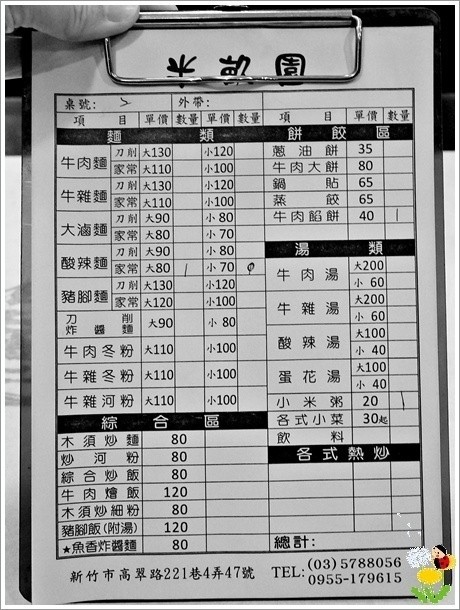 園
桌號: 外帶:
項目 單價 數量 單價 數量
麵類
牛肉麵 刀削 大130 小120
家常 大110 小100
牛雜麵 刀削 大130 小120
家常 大110 小100
大滷麵 刀削 大90 小80
家常 大80 小70
酸辣麵 刀削 大90 小80
家常 大80 1 小70
豬腳麵 刀削 大130 小120
家常 大120 小100
刀削炸醬麵 大90 小80
牛肉冬粉 大110 小100
牛雜冬粉 大110 小100
牛雜河粉 大110 小100
綜合區
木須炒麵 80
炒河粉 80
綜合炒飯 80
牛肉燴飯 120
木須炒細粉 80
豬腳飯(附湯) 120
★魚香炸醬麵 80
項目 單價 數量
餅餃區
蔥油餅 35
牛肉大餅 80
鍋貼 65
蒸餃 65
牛肉餡餅 40 1
湯類
牛肉湯 大200
小60
牛雜湯 大200
小60
酸辣湯 大100
小40
蛋花湯 大100
小40
小米粥 20 1
各式小菜 30起
飲料
各式熱炒
總計:
新竹市高翠路221巷4弄47號 TEL: (03)5788056
0955-179615